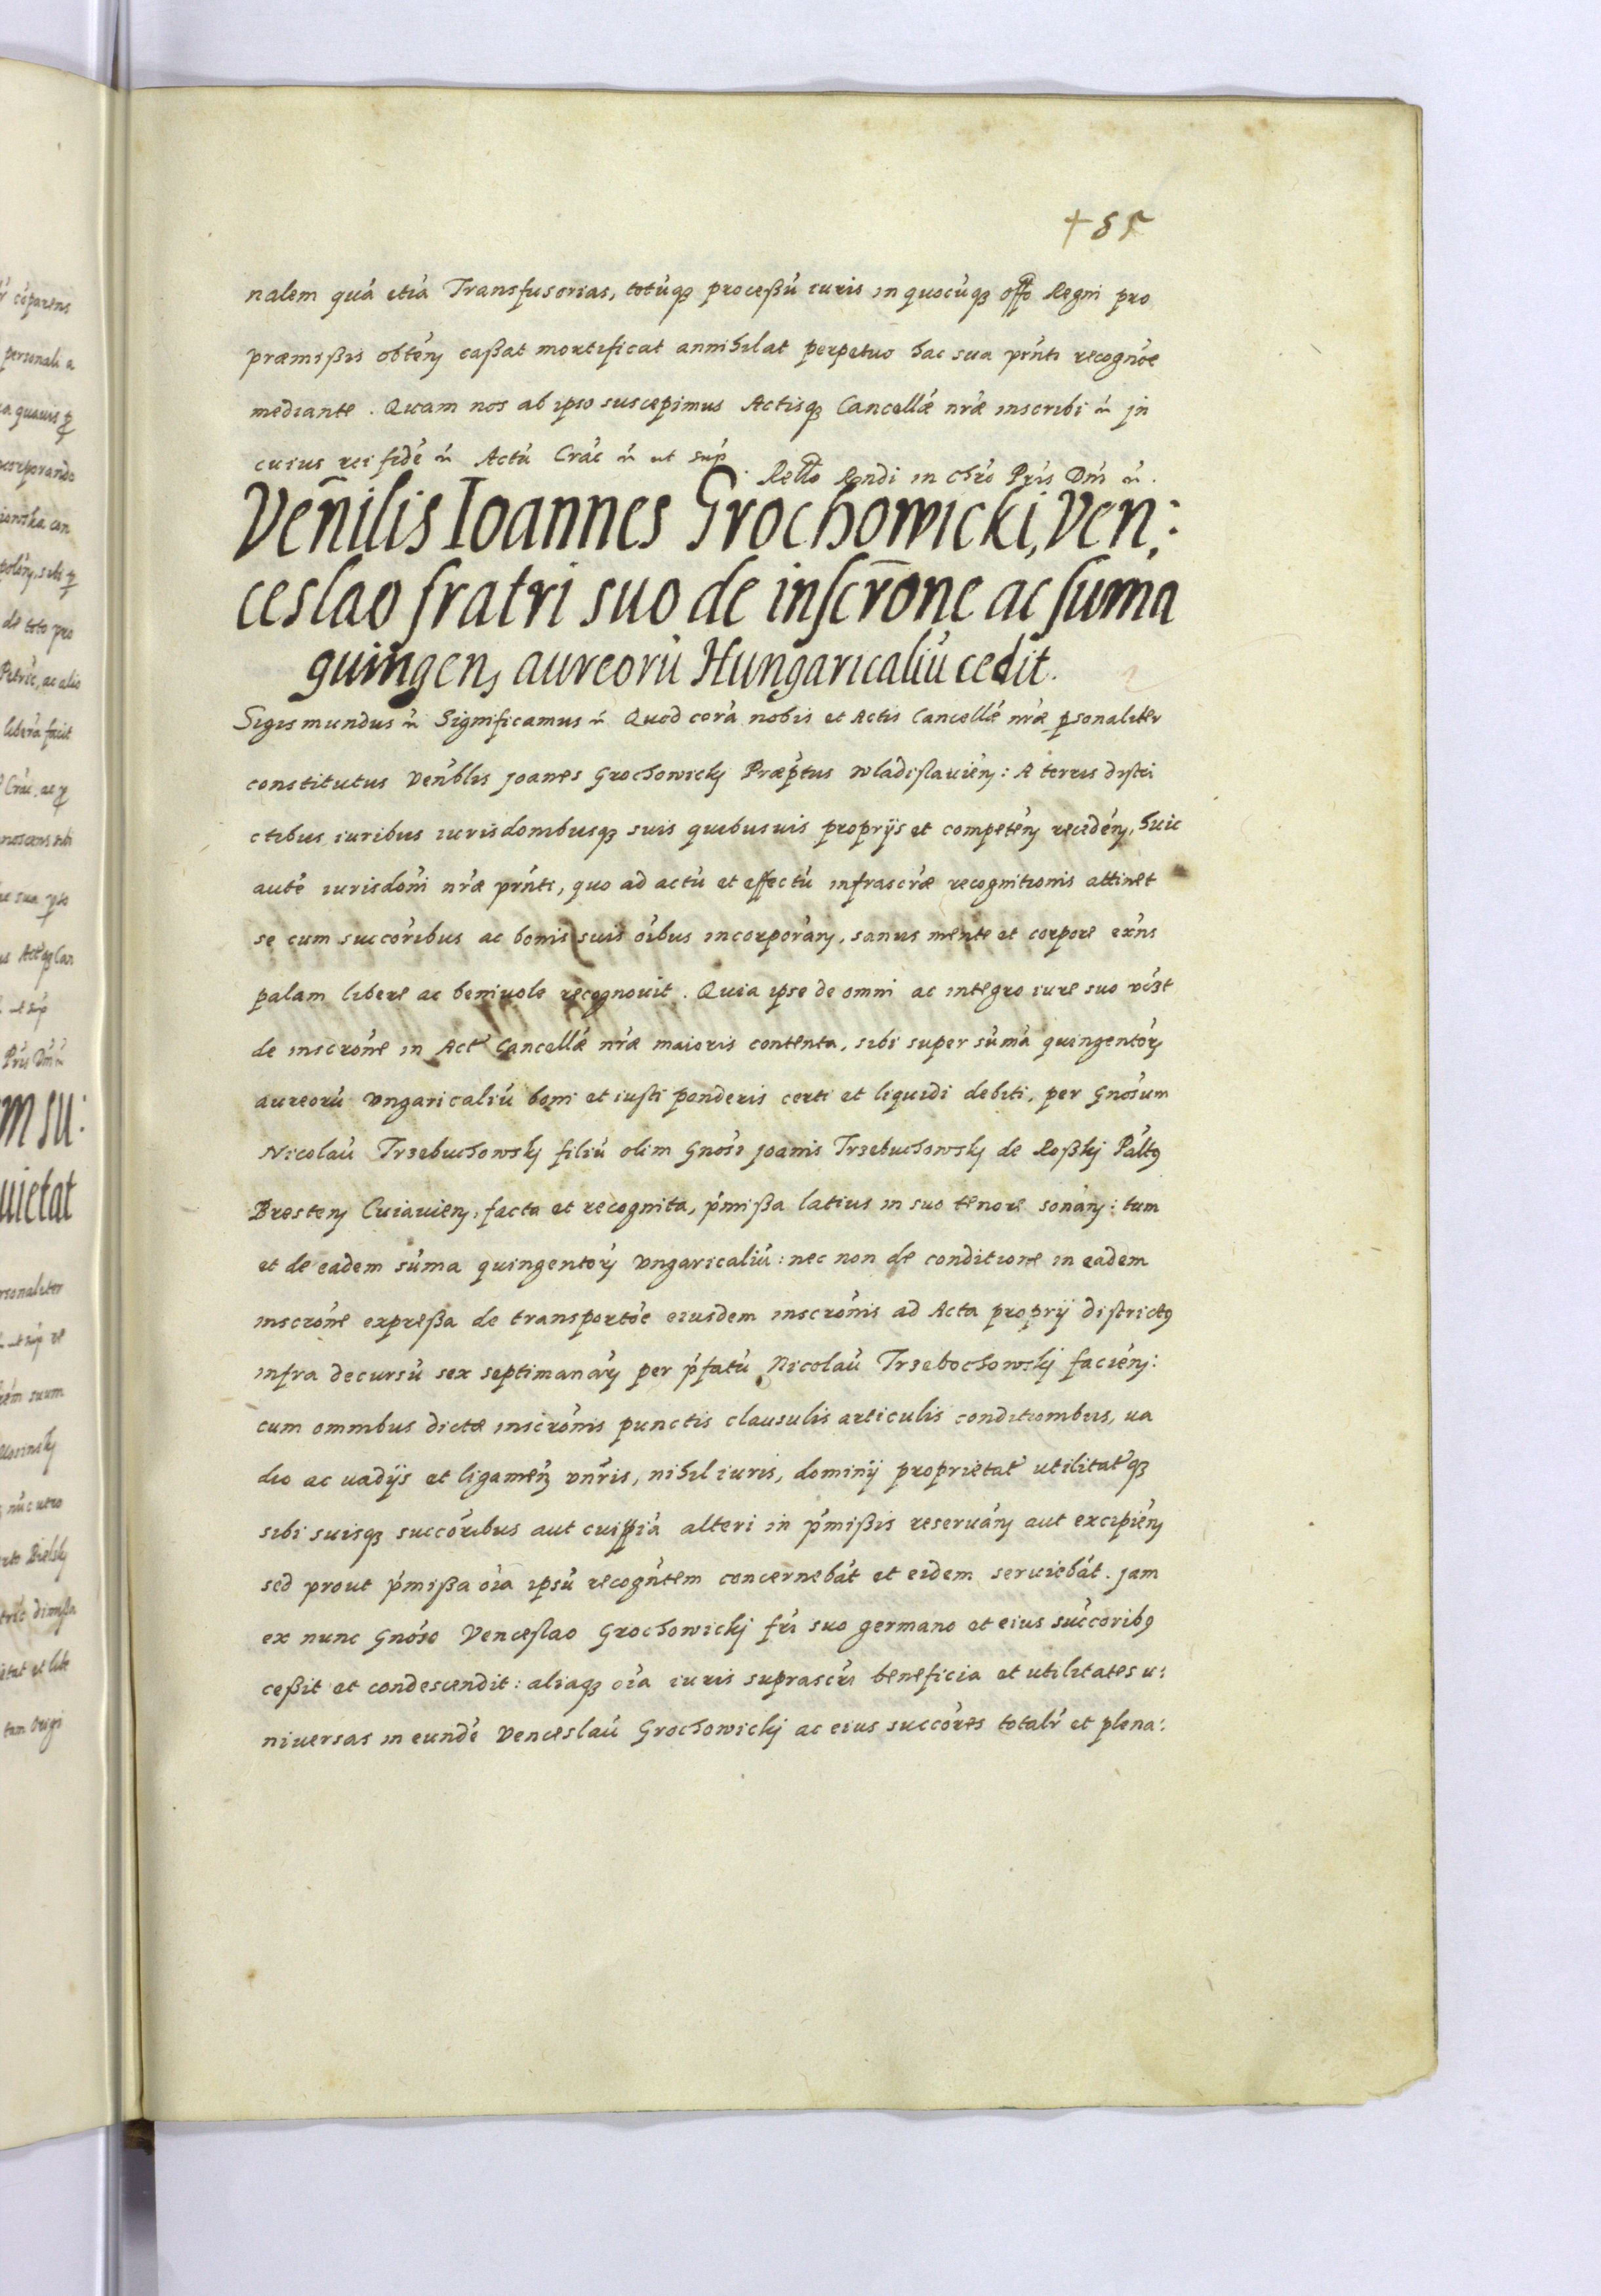 +85
nalem quá etiá Transfusorias, totúqȝ proceßú iuris in quocúqȝ offo Regni pro
præmißis obtén caßat mortificat annihilat perpetuo hac sua prńti recognóe
mediante. Quam nos ab ipso suscepimus Actisqȝ Cancellæ nræ inscribi &c. jn
cuius rei fidé &c. Actú Crác &c. ut sup.
Rello Rendi in Chro Pris Dni &c.
Ven̄ilis Ioannes Grochowicki, Ven:
ceslao fratri suo de inscr̄one ac suma
quingen, aureorú Hungaricaliú cedit.
Sigismundus &c. Significamus &c. Quod corá nobis et Actis Cancellæ nræ psonaliter
constitutus Venblis Joanes Grochowickj Præptus Wladislauién: A terris distri
ctibus iuribus iurisdonibusqȝ suis quibusuis proprijs et competén recedén, huic
auté iurisdoni nræ prńti, quo ad actú et effectú infrascræ recognitionis attinet
se cum succoribus ac bonis suis oibus incorporán, sanus mente et corpore exńs
palam libere ac beniuole recognouit. Quia ipse de omni ac integro iure suo vcȝt
de inscrone in Act' Cancellæ nræ maioris contenta, sibi super súmá quingentorȝ
aureorú Vngaricaliú boni et iusti ponderis certi et liquidi debiti, per Gnosum
Nicolaú Trzebuchowskj filiú olim Gnosi Joanis Trzebuchowskj de Roßkj Palt9
Bresten Cuiauien, facta et recognita, pmißa latius in suo tenore sonán: tum
et de eadem súma quingentorȝ Vngaricaliú: nec non de conditione in eadem
inscrone expreßa de transportoe eiusdem inscronis ad Acta proprij district9
infra decursú sex septimanarȝ per pfatú Nicolaú Trzebochowskj facién:
cum omnibus dictæ inscronis punctis clausulis articulis conditionibus, ua
dio ac uadijs et ligamen vnris, nihil iuris, dominij proprietat' utilitat'qȝ
sibi suisqȝ succoribus aut cuippiá alteri in pmißis reseruán aut excipién
sed prout pmißa oia ipsú recogntem concernebát et eidem seruiebát. Jam
ex nunc Gnoso Venceslao Grochowickj fri suo germano et eius succorib9
ceßit et condescendit: aliaqȝ oia iuris suprascri beneficia et utilitates u:
niuersas in eundé Venceslaú Grochowickj ac eius succores totalr et plena: